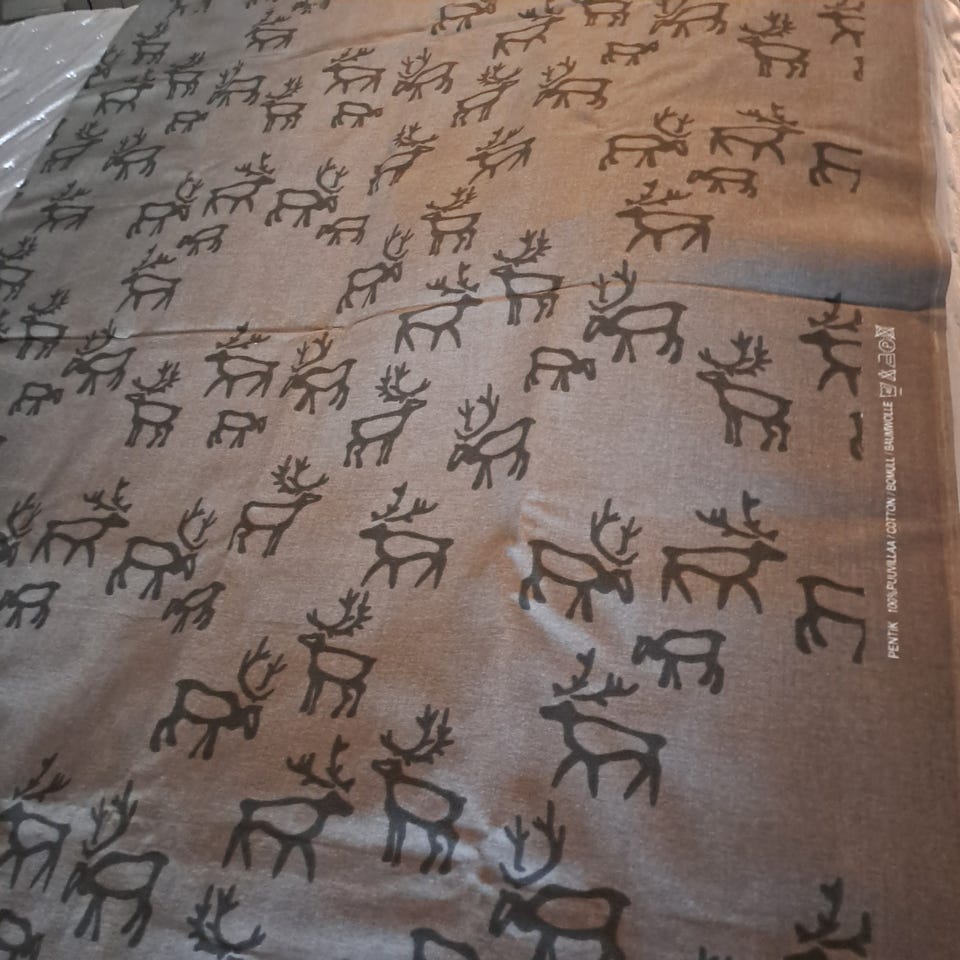 PENTIK 100% PUUVILLAA / COTTON / BOMULL / BAUMWOLLE